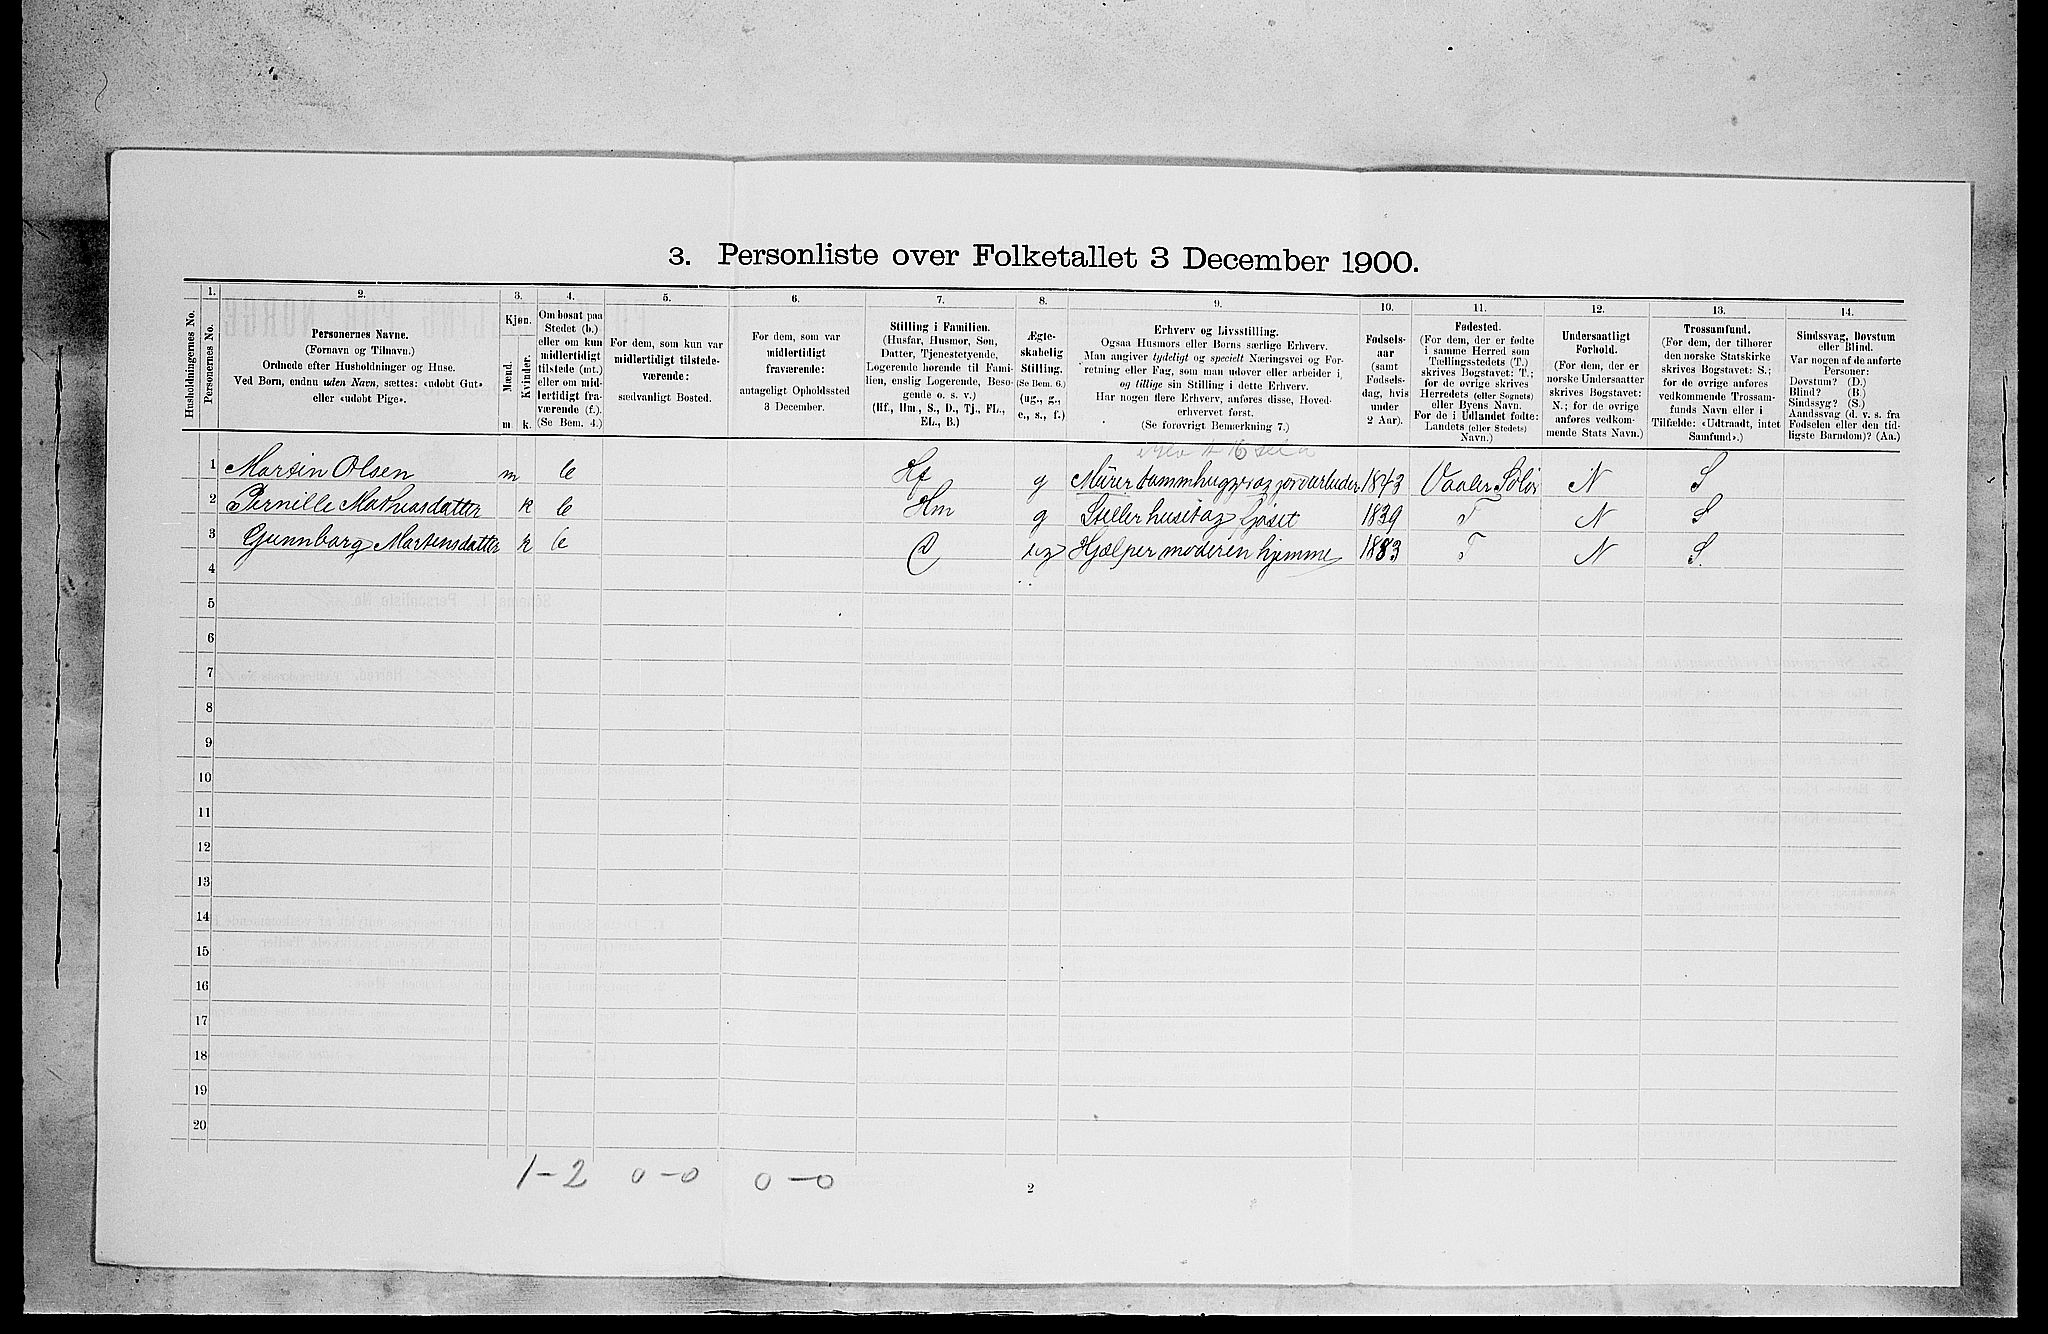 3. Personliste over Folketallet 3 December 1900.
1. 2. 3. 4. 5. 6. 7. 8. 9. 10. 11. 12. 13. 14.
Husholdningernes No.
Personernes No.
Personernes Navne.
(Fornavn og Tilnavn.)
Ordnede efter Husholdninger og Huse.
Ved Børn, endnu uden Navn, sættes: «udøbt Gut»
eller «udøbt Pige».
Kjøn.
Mænd.
Kvinder.
m. k.
Om bosat paa
Stedet (b.)
eller om kun
midlertidigt
tilstede (mt.)
eller om mid-
lertidigt fra-
værende (f.).
(Se Bem. 4.)
For dem, som kun var
midlertidigt tilstede-
værende:
sædvanligt Bosted.
For dem, som var
midlertidigt
fraværende:
antageligt Opholdssted
3 December.
Stilling i Familien.
(Husfar, Husmor, Søn,
Datter, Tjenestetyende,
Logerende hørende til Fami-
lien, enslig Logerende, Besø-
gende o. s. v.)
(Hf., Hm., S., D., Tj., FL.,
EL., B.)
Ægte-
skabelig
Stilling.
(Se Bem. 6.)
(ug., g.,
e., s., f.)
Erhverv og Livsstilling.
Ogsaa Husmors eller Børns særlige Erhverv.
Man angiver tydeligt og specielt Næringsvei og For-
retning eller Fag, som man udøver eller arbeider i,
og tillige sin Stilling i dette Erhverv.
Har nogen flere Erhverv, anføres disse, Hoved-
erhvervet først.
(Se forøvrigt Bemerkning 7.)
Fødsels-
aar
(samt
Fødsels-
dag, hvis
under
2 Aar).
Fødested.
(For dem, der er fødte
i samme Herred som
Tællingsstedets (T.)
skrives Bogstavet: T.;
for de øvrige skrives
Herredets (eller Sognets)
eller Byens Navn.
For de i Udlandet fødte:
Landets (eller Stedets)
Navn.)
Undersaatligt
Forhold.
(For dem, der er
norske Undersaatter
skrives Bogstavet:
N.; for de øvrige
anføres vedkom-
mende Stats Navn.)
Trossamfund.
(For dem, der tilhører
den norske Statskirke
skrives Bogstavet: S.;
for de øvrige anføres
vedkommende Trossam-
funds Navn eller i
Tilfælde: «Udtraadt, intet
Samfund».)
Sindssvag, Døvstum
eller Blind.
Var nogen af de anførte
Personer:
Døvstum? (D.)
Blind? (B.)
Sindssyg? (S.)
Aandssvag (d. v. s. fra
Fødselen eller den tid-
ligste Barndom)? (Aa.)
1 Martin Olsen m b Hf g Mürer tømmhugger og jordarbeider 1843 Vaaler Solør N S
2 Pernille Mathiasdatter k b Hm g Steller huset og fjøset 1839 T N S
3 Gunnborg Martensdatter k b D ug Hjælper moderen hjemme 1883 T N S.
4
5
6
7
8
9
10
11
12
13
14
15
16
17
18
19
20
1-2 0-0 0-0
2